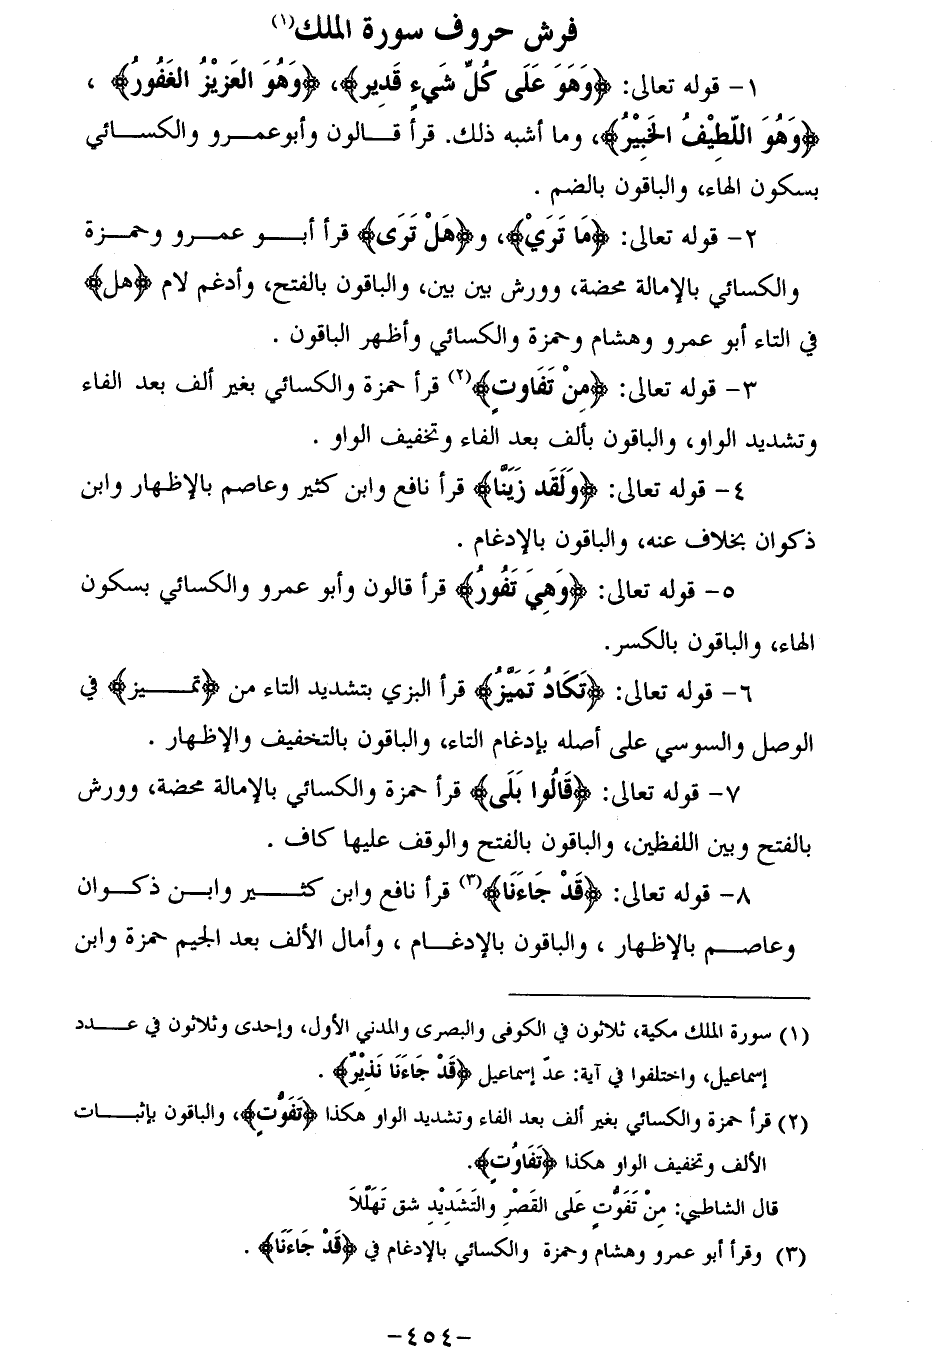 فرش حروف سورة الملك(١)
١- قوله تعالى: ﴿وَهَوَ عَلَى كُلِّ شَيءٍ قَدِير﴾، ﴿وَهُوَ العَزِيْزُ الغَفُورُ﴾ ،
﴿وَهُوَ اللَّطِيْفُ الخَبِيْرُ﴾، وما أشبه ذلك. قرأ قـالون وأبوعمـرو والكسـائي
بسكون الهاء، والباقون بالضم .
٢- قوله تعالى: ﴿مَا تَرَيْ﴾، و﴿هَلْ تَرَى﴾ قرأ أبـو عمـرو وحمـزة
والكسائي بالإمالة محضة، وورش بين بين، والباقون بالفتح، وأدغم لام ﴿هل﴾
في التاء أبو عمرو وهشام وحمزة والكسائي وأظهر الباقون .
٣- قوله تعالى: ﴿مِنْ تَفَاوتٍ﴾(٢) قرأ حمزة والكسائي بغير ألف بعد الفاء
وتشديد الواو، والباقون بألف بعد الفاء وتخفيف الواو .
٤- قوله تعالى: ﴿وَلَقَد زَيَنَّا﴾ قرأ نافع وابن كثير وعاصم بالإظهار وابن
ذكوان بخلاف عنه، والباقون بالإدغام .
٥- قوله تعالى: ﴿وَهِيَ تَفُورُ﴾ قرأ قالون وأبو عمرو والكسائي بسكون
الهاء، والباقون بالكسر.
٦- قوله تعالى: ﴿تَكَادُ تَمَيَّزُ﴾ قرأ البزي بتشديد التاء من ﴿تميـز﴾ في
الوصل والسوسي على أصله بإدغام التاء، والباقون بالتخفيف والإظهار .
٧- قوله تعالى: ﴿قَالُوا بَلَى﴾ قرأ حمزة والكسائي بالإمالة محضة، وورش
بالفتح وبين اللفظين، والباقون بالفتح والوقف عليها كاف .
٨- قوله تعالى: ﴿قَدْ جَاءَنَا﴾(٣) قرأ نافع وابن كثـير وابـن ذكـوان
وعاصـم بالإظهار ، والباقون بالإدغـام ، وأمال الألف بعد الجيم حمزة وابن
(١) سورة الملك مكية، ثلاثون في الكوفى والبصرى والمدني الأول، وإحدى وثلاثون في عـدد
إسماعيل، واختلفوا في آية: عدّ إسماعيل ﴿قَدْ جَاءَنَا نَذِيْرٌ﴾ .
(٢) قرأ حمزة والكسائي بغير ألف بعد الفاء وتشديد الواو هكذا ﴿تَفَوُّتٍ﴾، والباقون بإثبـات
الألف وتخفيف الواو هكذا ﴿تَفَاوُتٍ﴾.
قال الشاطبي: مِنْ تَفَوُّتٍ عَلى القَصْرِ والتَشَدِيْدِ شق تَهَلَّلاَ
(٣) وقرأ أبو عمرو وهشام وحمزة والكسائي بالإدغام في ﴿قَدْ جَاءَنَا﴾ .
-٤٥٤-